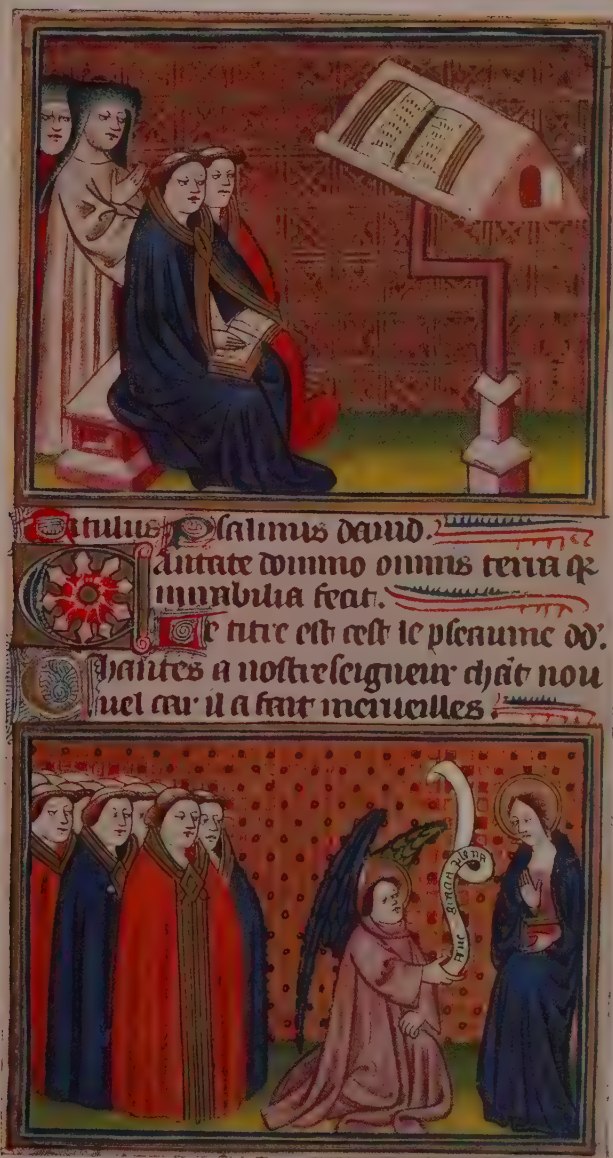 Titulus Psalmus dauid.
Cantate domino omnis terra qr
mirabilia fecit.
Le titre est cest le pseaume dd'.
Chantes a nostre seigneur chãt nou
uel car il a fait merueilles.
aue gracia plena